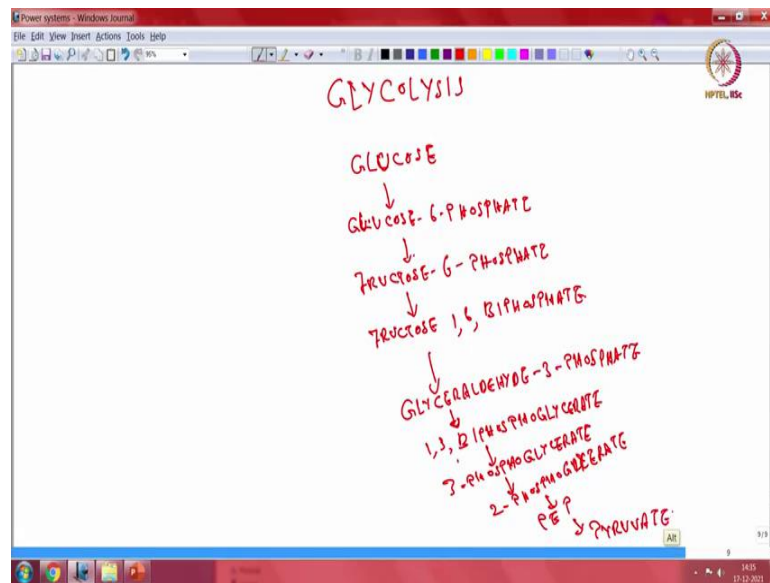 Power systems - Windows Journal
File Edit View Insert Actions Tools Help
95%
NPTEL, IISc
GLYCOLYSIS
GLUCOSE
GLUCOSE-6-PHOSPHATE
FRUCTOSE-6-PHOSPHATE
FRUCTOSE 1,6, BIPHOSPHATE
GLYCERALDEHYDE-3-PHOSPHATE
1,3, BIPHOSPHOGLYCERATE
3-PHOSPHOGLYCERATE
2-PHOSPHOGLYCERATE
PEP
PYRUVATE
Alt
9/9
9
14:15
17-12-2021